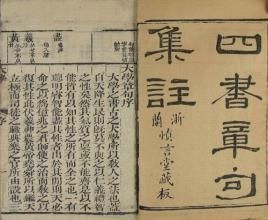 四書章句
集註
浙
蘭慎言堂藏板
大學章句序
大學之書古之大學所以教人之法也蓋
自天降生民則既莫不與之以仁義禮智
之性矣然其氣質之稟或不能齊是以不
能皆有以知其性之所有而全之也一有
聰明睿智能盡其性者出於其閒則天必
命之以為億兆之君師使之治而教之以
復其性此伏羲神農黃帝堯舜所以繼天
立極而司徒之職典樂之官所由設也